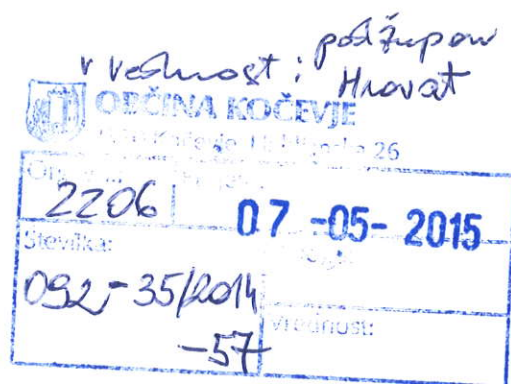 v vednost: podžupan
Hrovat
OBČINA KOČEVJE
26
2206
07 -05- 2015
Številka:
092-35/2014
-57
Vrednost: